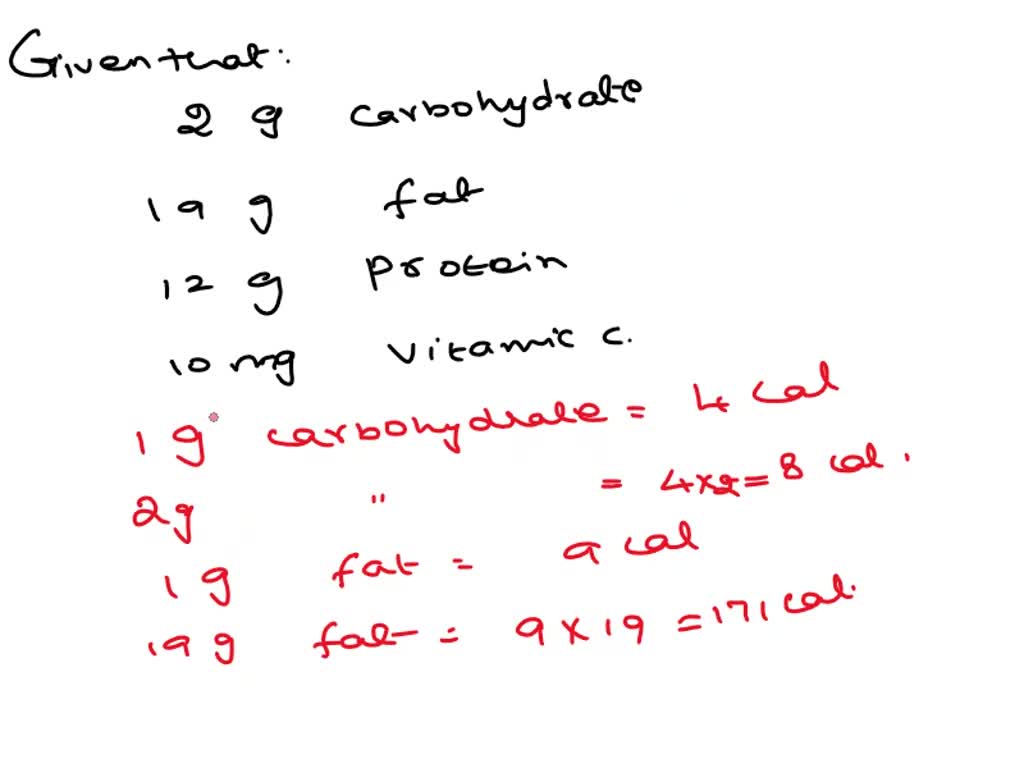 Given that:
2 g carbohydrate
19 g fat
12 g protein
10 mg vitamic c.
1 g carbohydrate = 4 cal
2g " = 4x2=8 cal.
1 g fat = 9 cal
19 g fat = 9 x 19 = 171 cal.